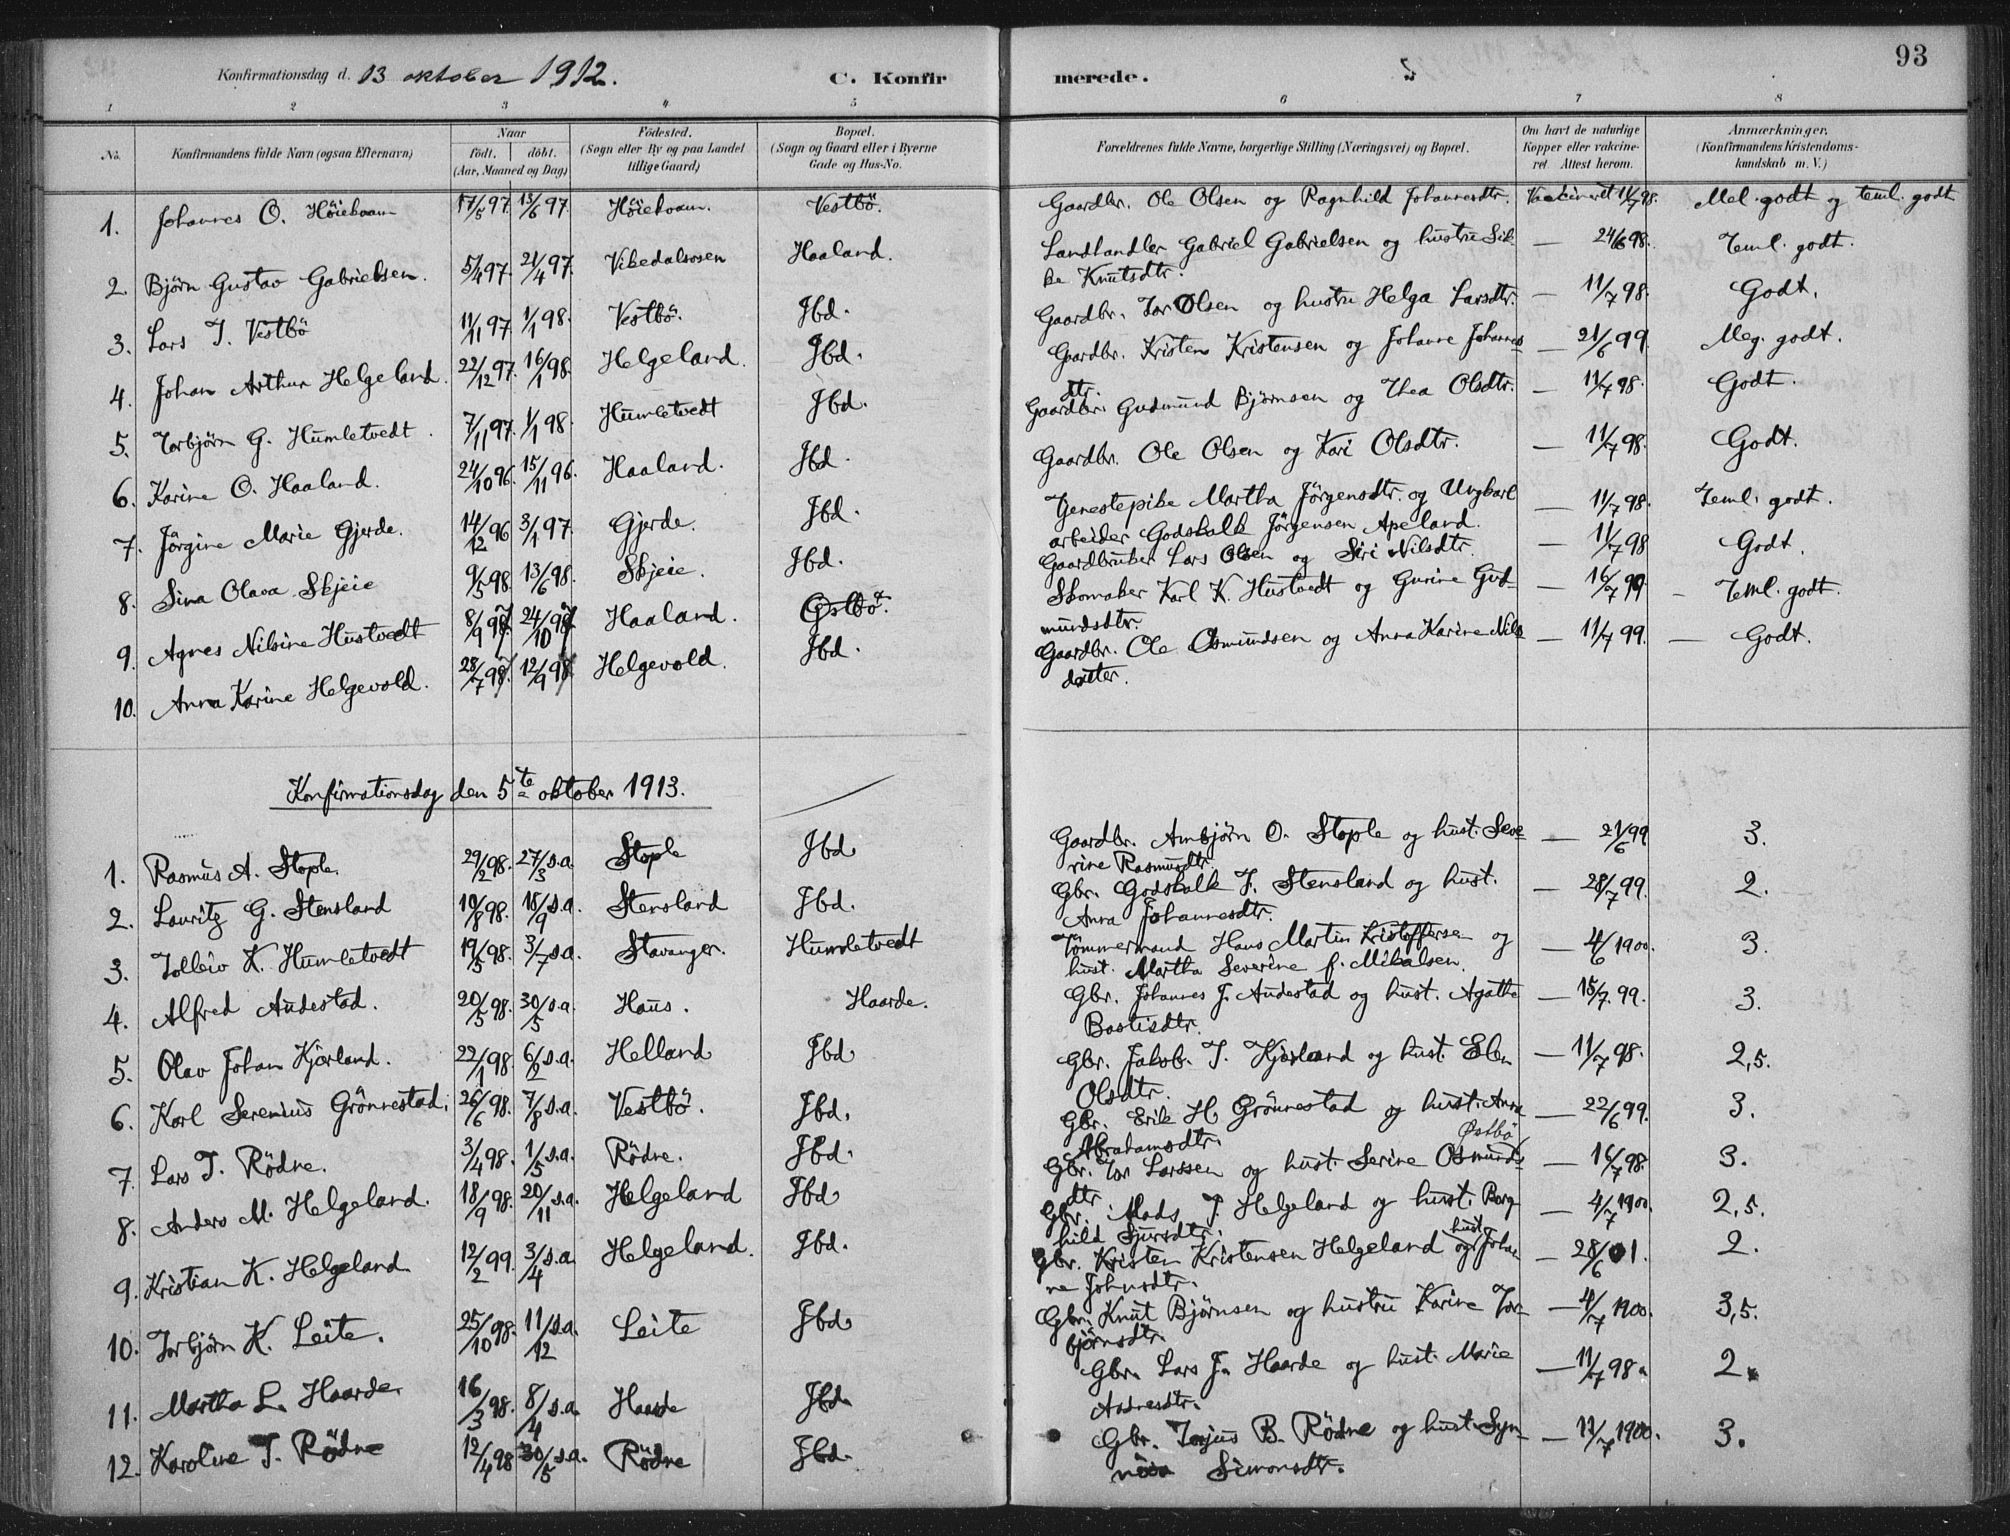 93
Konfirmationsdag d. 13 oktober 1912. C. Konfirmerede.
1 2 3 4 5 6 7 8
No. Konfirmandens fulde Navn (ogsaa Efternavn) Naar födt. döbt. (Aar, Maaned og Dag) Födested. (Sogn eller By og paa Landet tillige Gaard) Bopæl. (Sogn og Gaard eller i Byerne Gade og Hus-No. Forældrenes fulde Navne, borgerlige Stilling (Næringsvei) og Bopæl. Om havt de naturlige Kopper eller vakcineret. Attest herom. Anmærkninger. (Konfirmandens Kristendomskundskab m. V.)
1. Johannes O. Höiekvam 17/5 97 13/6 97. Höiekvam. Vestbö. Gaardbr. Ole Olsen og Ragnhild Johannesdtr. Vakcineret 11/7 98. Mel. godt og teml. godt
2. Björn Gustav Gabrielsen. 5/4 97. 21/4 97. Vikedalsosen Haaland. Landhandler Gabriel Gabrielsen og hustru Silke Knutsdtr. — 24/6 98. Teml. godt.
3. Lars T. Vestbö 11/11 97 1/1 98. Vestbö. Ibd. Gaardbr. Tor Olsen og hustru Helga Larsdtr. — 11/7 98. Godt.
4. Johan Arthur Helgeland. 22/12 97. 16/1 98. Helgeland. Ibd. Gaardbr. Kristen Kristensen og Johanne Johannesdtr. — 21/6 99. Meg. godt.
5. Torbjörn G. Humletvedt. 7/11 97. 1/1 98. Humletvedt Ibd. Gaardbr. Gudmund Björnsen og Thea Olsdtr. — 11/7 98. Godt.
6. Karine O. Haaland. 24/10 96. 15/11 96. Haaland. Ibd. Gaardbr. Ole Olsen og Kari Olsdtr. — 11/7 98. Godt.
7. Jörgine Marie Gjerde. 14/12 96 3/1 97. Gjerde. Ibd. Tjenestepike Martha Jörgensdtr. og Ungkarl arbeider Godskalk Jörgensen Apeland. — 11/7 98. Teml. godt.
8. Sina Olava Skjeie 9/5 98. 13/6 98. Skjeie. Ibd. Gaardbruker Lars Olsen og Siri Nilsdtr. — 11/7 98 Godt.
9. Agnes Nilsine Hustvedt 8/9 97. 24/10 97 Haaland. Østbö. Skomaker Karl K. Hustvedt og Gurine Gudmundsdtr. — 16/7 99 — Teml. godt.
10. Anna Karine Helgevold. 28/7 97. 12/9 97 Helgevold. Ibd. Gaardbr. Ole Osmundsen og Anna Karine Nilsdatter. — 11/7 99. — Godt.
Konfirmationsdag den 5te oktober 1913.
1. Rasmus A. Stople. 29/2 98. 27/3 s.a. Stople Ibd Gaardbr. Arnbjörn O. Stople og hust. Severine Rasmusdtr. — 21/6 99 3.
2. Lauritz G. Stensland 10/8 98. 18/9 s.a. Stensland Ibd. Gbr. Godskalk T. Stensland og hust. Anna Johannesdtr. — 28/7 99. 2.
3. Tolleiv K. Humletvedt 19/5 98. 3/7 s.a. Stavanger. Humletvedt Tömmermand Hans Martin Kristoffersen og hust. Martha Severine f. Mikalsen. — 4/6 1900. 3.
4. Alfred Audestad. 20/5 98. 30/5 s.a. Haus. Haarde. Gbr. Johannes J. Audestad og hust. Agathe Bastisdtr. — 15/7 99. 3.
5. Olav Johan Kjörland. 22/1 98. 6/2 s.a. Helland Ibd Gbr. Jakob T. Kjörland og hust. Elen Olsdtr. — 11/7 98. 2,5.
6. Karl Serenius Grönnestad. 26/6 98. 7/8 s.a. Vestbö. Ibd. Gbr. Erik H. Grönnestad og hust. Anna Abrahamsdtr. — 22/6 99. 3.
7. Lars T. Rödne. 3/4 98. 1/5 s.a. Rödne. Ibd. Gbr. Tor Larssen og hust. Serine Osmundsdtr Østbö — 16/7 98. 3.
8. Anders M. Helgeland. 18/9 98. 20/11 s.a. Helgeland Ibd Gbr. Mads T. Helgeland og hust. Borghild Sjursdtr. — 4/7 1900. 2,5.
9. Kristian K. Helgeland 12/2 99. 3/4 s.a Helgeland. Ibd. Gbr. Kristen Kristensen Helgeland og hust. Johanne Johnsdtr. — 28/6 01. 2.
10. Torbjörn K. Leite. 25/10 98. 11/12 s.a. Leite Ibd Gbr. Knut Björnsen og hustru Karine Torbjörnsdtr. — 4/7 1900. 3,5.
11. Martha L. Haarde. 16/3 98. 8/4 s.a. Haarde Ibd. Gbr. Lars J. Haarde og hust. Marie Andresdtr. — 11/7 98. 2.
12. Karoline T. Rödne 12/4 98 30/5 s.a. Rödne Ibd. Gbr. Terjus B. Rödne og hust. Synnöva Simonsdtr. — 11/7 1900. 3.